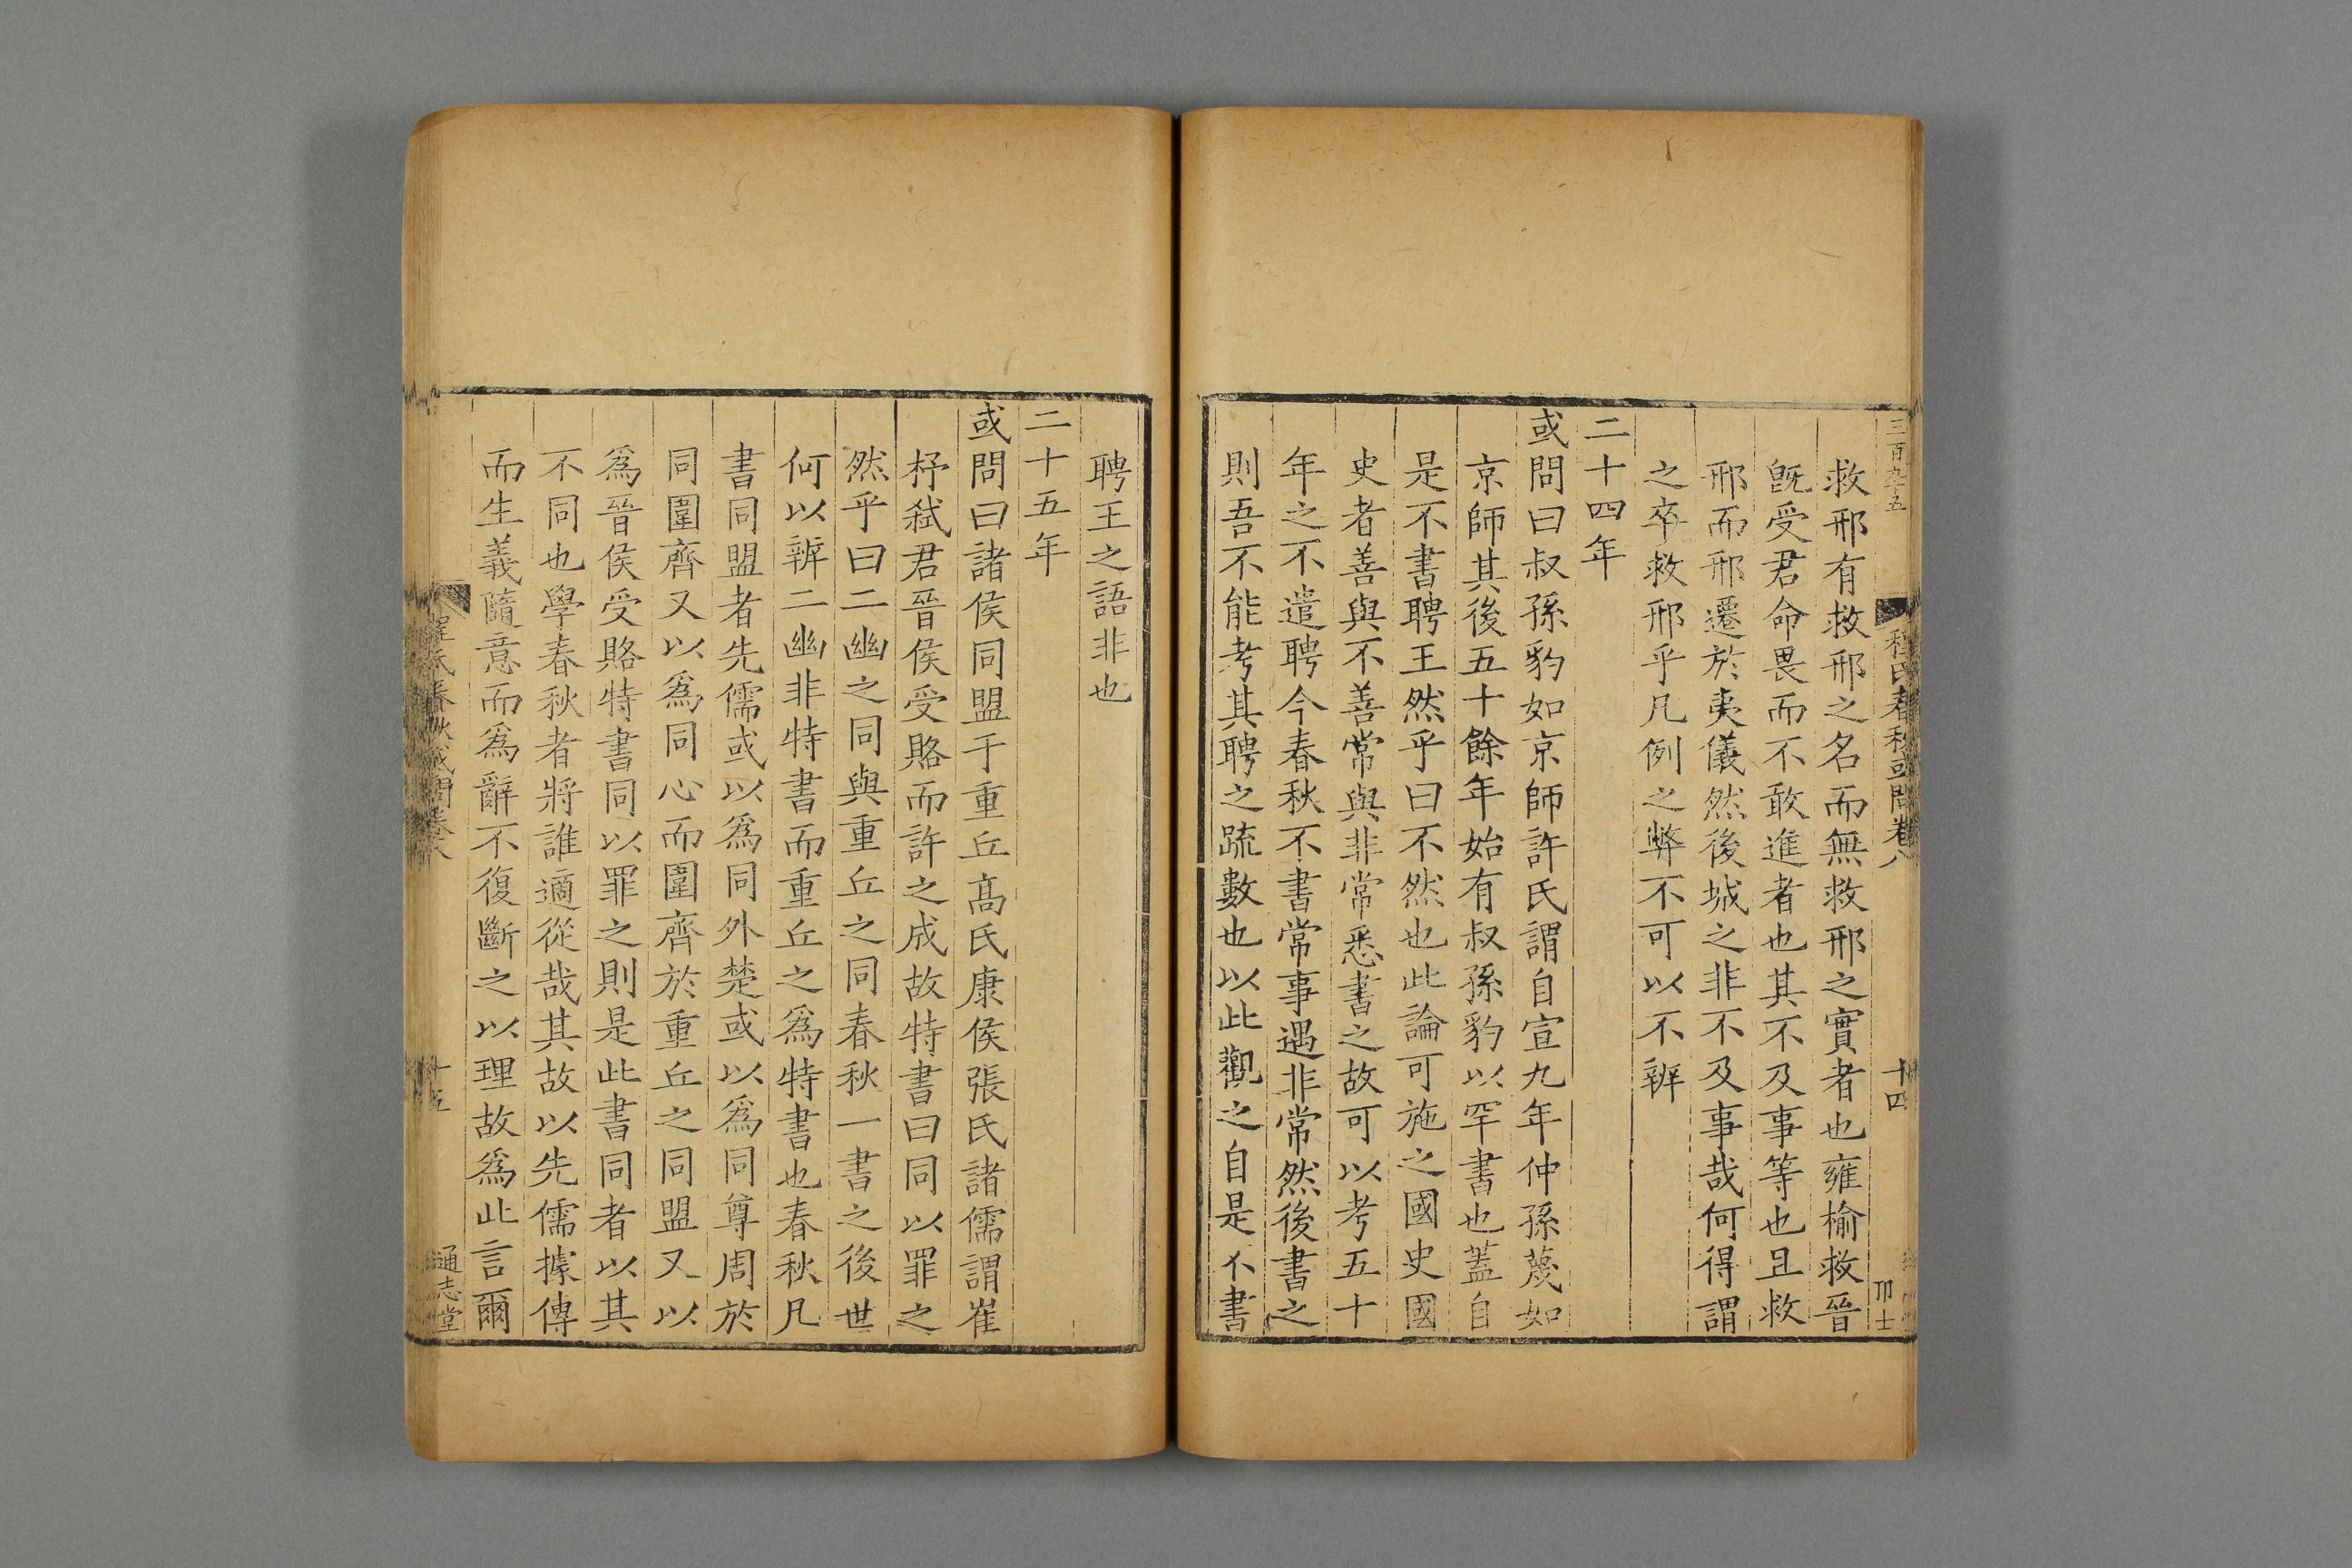 三百九十五
程氏春秋或問卷八
十四
救邢有救邢之名而無救邢之實者也雍榆救晉
旣受君命畏而不敢進者也其不及事等也且救
邢而邢遷於夷儀然後城之非不及事哉何得謂
之卒救邢乎凡例之弊不可以不辨
二十四年
或問曰叔孫豹如京師許氏謂自宣九年仲孫蔑如
京師其後五十餘年始有叔孫豹以罕書也蓋自
是不書聘王然乎曰不然也此論可施之國史國
史者善與不善常與非常悉書之故可以考五十
年之不遣聘今春秋不書常事遇非常然後書之
則吾不能考其聘之疏數也以此觀之自是不書
聘王之語非也
二十五年
或問曰諸侯同盟于重丘高氏康侯張氏諸儒謂崔
杼弒君晉侯受賂而許之成故特書曰同以罪之
然乎曰二幽之同與重丘之同春秋一書之後世
何以辨二幽非特書而重丘之爲特書也春秋凡
書同盟者先儒或以爲同外楚或以爲同尊周於
同圍齊又以爲同心而圍齊於重丘之同盟又以
爲晉侯受賂特書同以罪之則是此書同者以其
不同也學春秋者將誰適從哉其故以先儒據傳
而生義隨意而爲辭不復斷之以理故爲此言爾
程氏春秋或問卷八
十五
通志堂